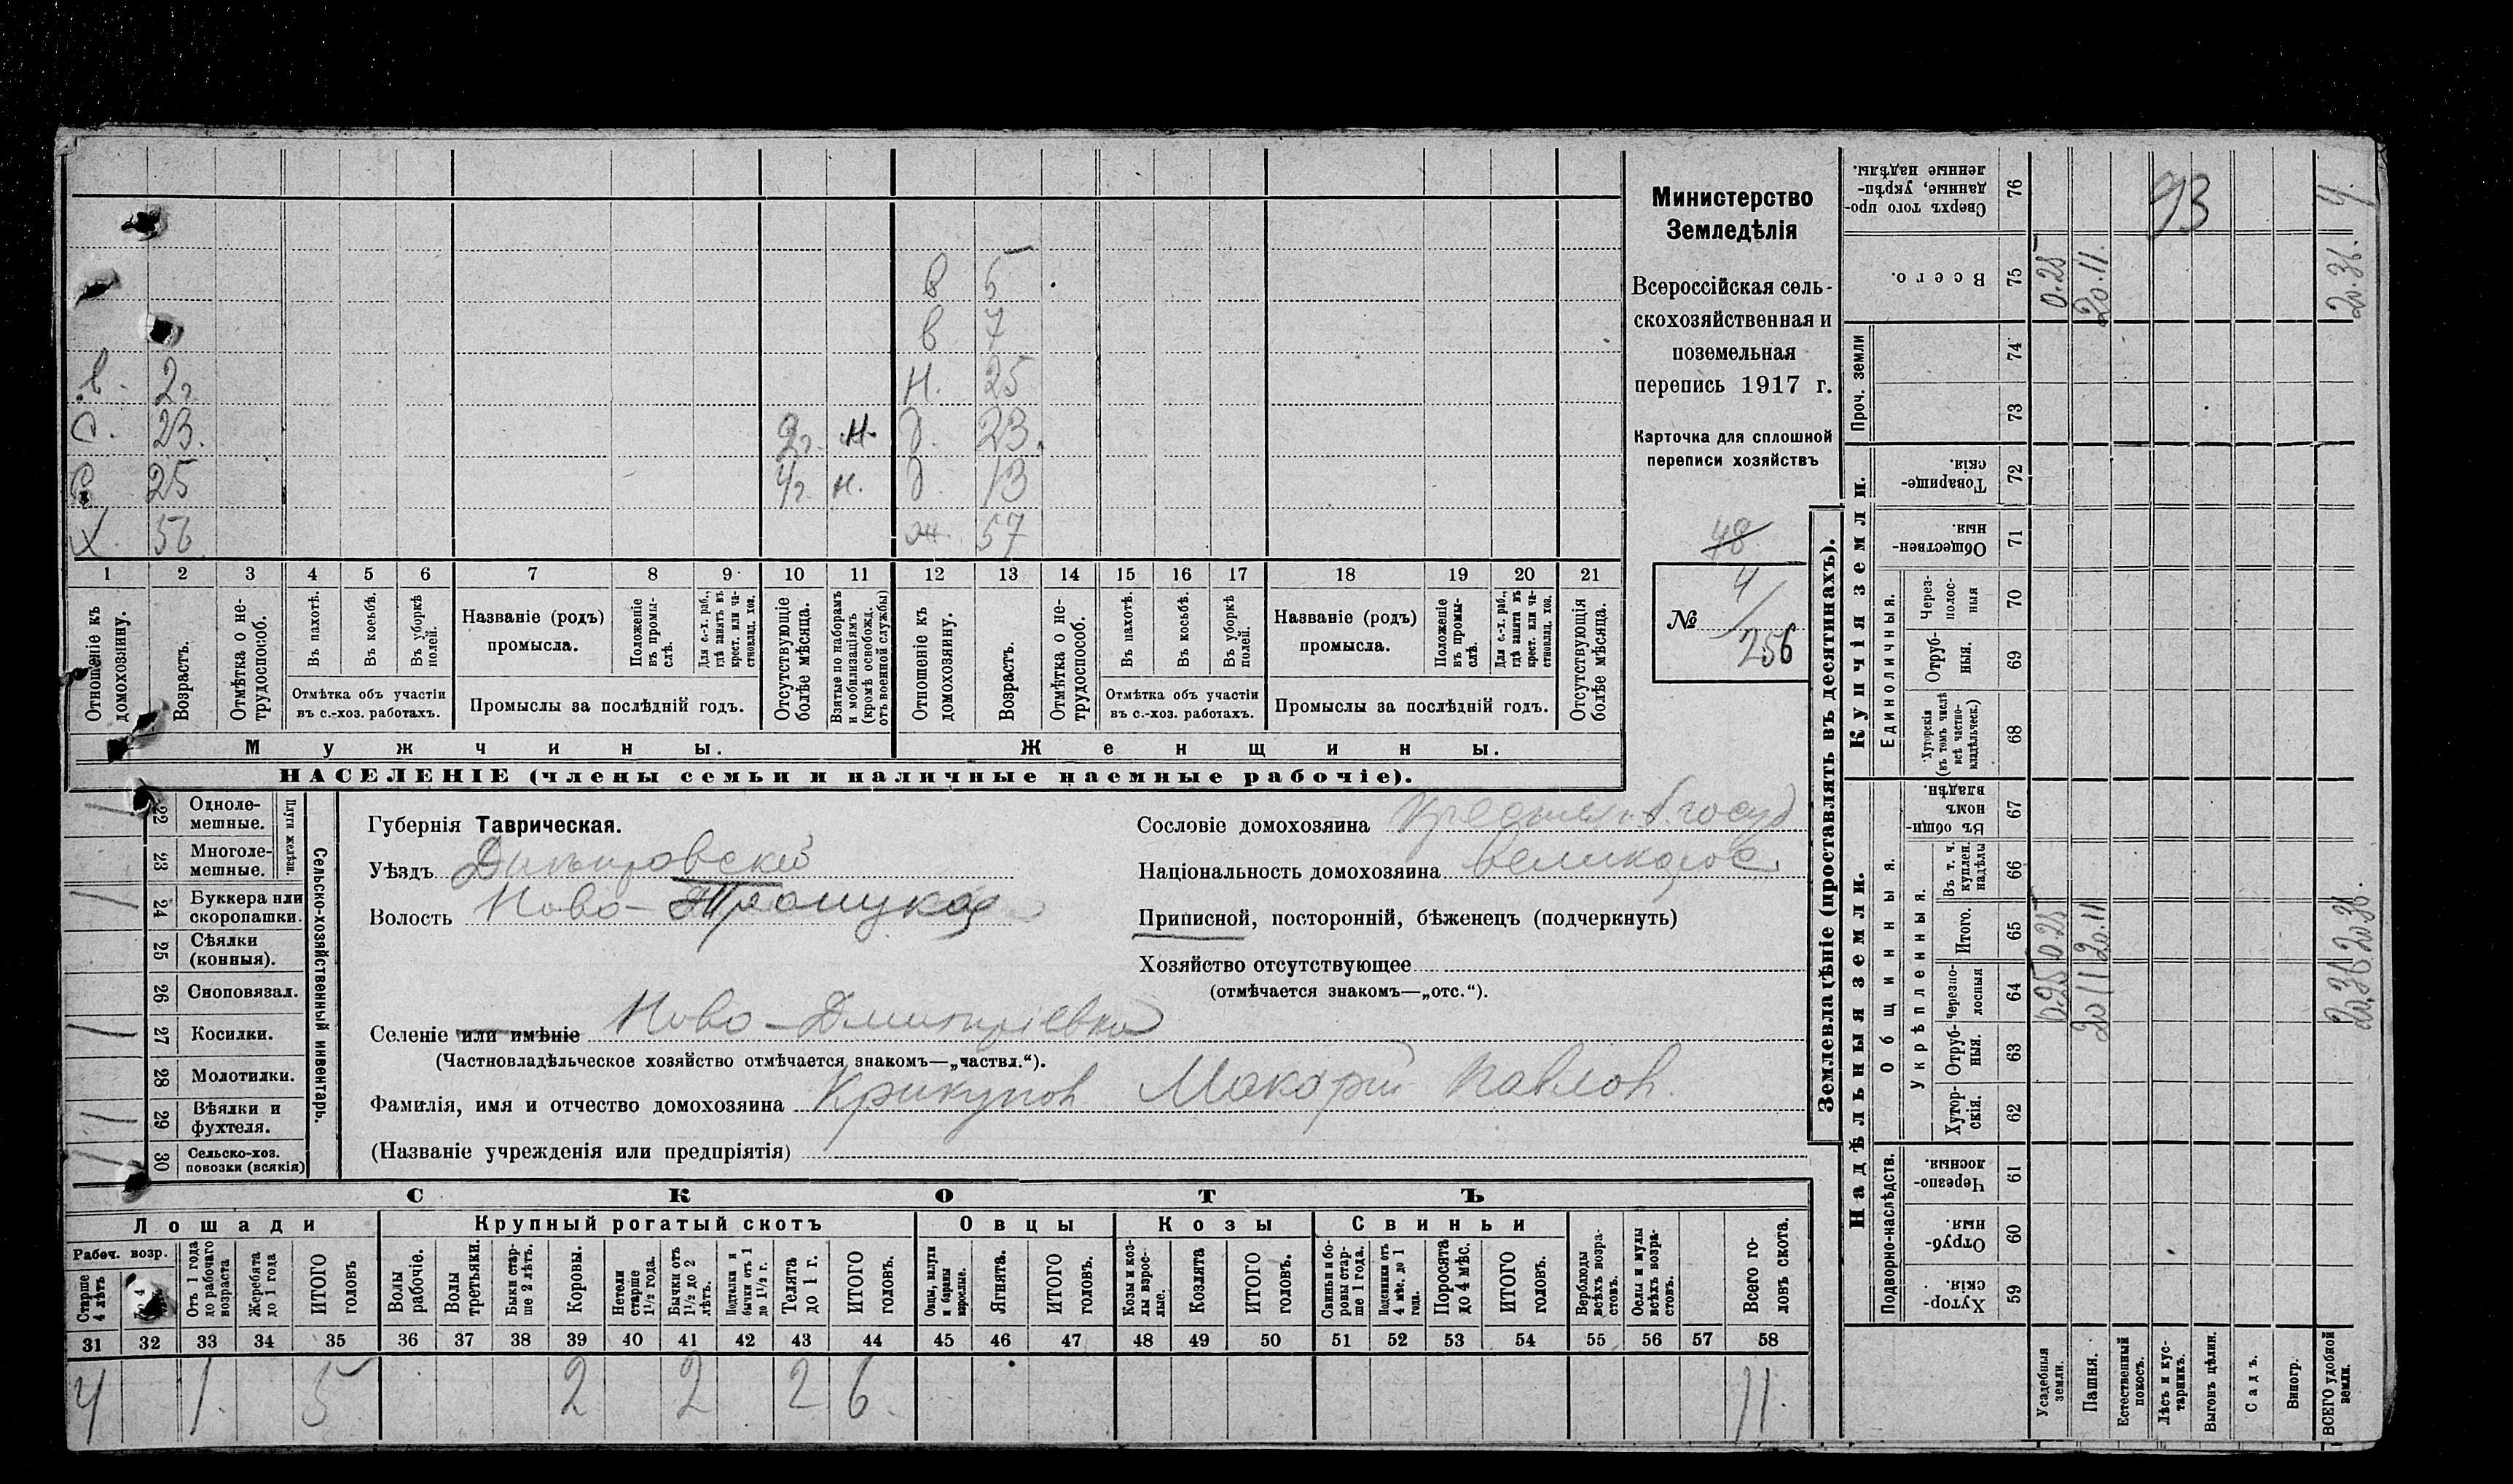 в 5
в 7
в. 2г Н. 25
С. 23. 2г. н. д. 23.
С. 25 4г. н. д. 13
Х. 56 ж. 57
1 2 3 4 5 6 7 8 9 10 11 12 13 14 15 16 17 18 19 20 21
Отношеніе къ домохозяину.
Возрастъ.
Отмѣтка о не-
трудоспособ.
Въ пахотѣ.
Въ косьбѣ.
Въ уборкѣ
полей.
Отмѣтка объ участіи
въ с.-хоз. работахъ.
Названіе (родъ)
промысла.
Положеніе
въ промы-
слѣ.
Для с.-х. раб.,
гдѣ занятъ въ
крест. или ча-
стновлад. хоз.
Промыслы за послѣдній годъ.
Отсутствующіе
болѣе мѣсяца.
Взятые по наборамъ
и мобилизаціямъ
(кромѣ освобожд.
отъ военной службы)
Отношеніе къ
домохозяину.
Возрастъ.
Отмѣтка о не-
трудоспособ.
Въ пахотѣ.
Въ косьбѣ.
Въ уборкѣ
полей.
Отмѣтка объ участіи
въ с.-хоз. работахъ.
Названіе (родъ)
промысла.
Положеніе
въ промы-
слѣ.
Для с.-х. раб.,
гдѣ занята въ
крест. или ча-
стновлад. хоз.
Промыслы за послѣдній годъ.
Отсутствующія
болѣе мѣсяца.
Мужчины. Женщины.
НАСЕЛЕНІЕ (члены семьи и наличные наемные рабочіе).
Министерство
Земледѣлія
Всероссійская сель-
скохозяйственная и
поземельная
перепись 1917 г.
Карточка для сплошной
переписи хозяйствъ
48
№ 4/256
Сельско-хозяйственный инвентарь.
Плуги желѣзн.
22 Одноле-
мешные.
23 Многоле-
мешные.
24 Буккера или
скоропашки.
25 Сѣялки
(конныя).
26 Сноповязал.
27 Косилки.
28 Молотилки.
29 Вѣялки и
фухтеля.
30 Сельско-хоз.
повозки (всякія)
Губернія Таврическая.
Уѣздъ Днѣпровскій
Волость Ново-Троицкая
Селеніе или имѣніе Ново-Дмитріевка
(Частновладѣльческое хозяйство отмѣчается знакомъ—„частвл.“).
Фамилія, имя и отчество домохозяина Крикунов Макорій Павлов.
(Названіе учрежденія или предпріятія)
Сословіе домохозяина
Національность домохозяина великорос.
Приписной, посторонній, бѣженецъ (подчеркнуть)
Хозяйство отсутствующее
(отмѣчается знакомъ—„отс.“).
СКОТЪ
Лошади Крупный рогатый скотъ Овцы Козы Свиньи
Рабоч. возр.
Старше
4 лѣтъ
Отъ 1 года
до рабочаго
возраста
Жеребята
до 1 года
ИТОГО
головъ
Волы
рабочіе.
Волы
третьяки.
Быки стар-
ше 2 лѣтъ.
Коровы.
Нетели
старше
1½ года.
Бычки отъ
1½ до 2
лѣтъ.
Подтелки и
бычки отъ 1
до 1½ г.
Телята
до 1 г.
ИТОГО
головъ.
Овцы, валухи
и бараны
взрослые.
Ягнята.
ИТОГО
головъ.
Козы и коз-
лы взрос-
лые.
Козлята
ИТОГО
головъ.
Свиньи и бо-
ровы стар-
ше 1 года.
Подсвинки отъ
4 мѣс. до 1
года.
Поросята
до 4 мѣс.
ИТОГО
головъ.
Верблюды
всѣхъ возра-
стовъ.
Ослы и мулы
всѣхъ возра-
стовъ.
Всего го-
ловъ скота.
31 32 33 34 35 36 37 38 39 40 41 42 43 44 45 46 47 48 49 50 51 52 53 54 55 56 57 58
4 1. 5 2 2 2 6. 11.
Землевладѣніе (проставлять въ десятинахъ).
Купчія земли.
Надѣльныя земли.
Сверхъ того про-
данные, укрѣп-
ленные надѣлы.
76
93
4.
Всего.
75
0.25
20.11.
20.36.
Проч. земли
74
73
Товарище-
скія.
72
Обществен-
ныя.
71
Единоличныя.
Через-
полос-
ныя
70
Отруб-
ныя.
69
Хуторскія
(въ томъ числѣ
всѣ частно-
владѣльческ.)
68
Общинныя.
Въ общи-
номъ
владѣн.
67
Укрѣпленныя.
Въ т. ч.
куплен.
надѣлы
66
Итого.
65
0.25
20.11
20.36.
Черезпо-
лосныя
64
0.25
20 11
20.36
Отруб-
ныя.
63
Хутор-
скія.
62
Подворно-наслѣдств.
Черезпо-
лосныя.
61
Отруб-
ныя.
60
Хутор-
скія.
59
Усадебныя
земли.
Пашня.
Естественный
покосъ.
Лѣсъ и кус-
тарникъ.
Выгонъ цѣлин.
Садъ.
Виногр.
ВСЕГО удобной
земли.